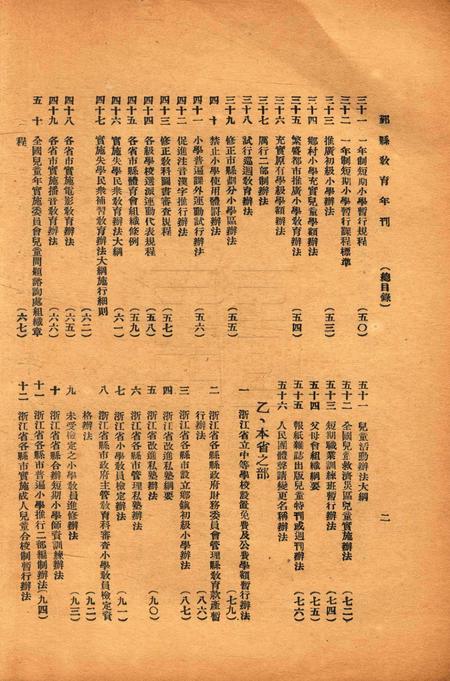 鄞縣教育年刊　（總目錄）　二
三十一　一年制短期小學暫行規程　（五〇）
三十二　一年制短期小學暫行課程標準
三十三　推廣初級小學辦法　（五三）
三十四　鄉村小學充實兒童學額辦法
三十五　繁盛都市推廣小學教育辦法　（五四）
三十六　充實原有學級學額辦法
三十七　厲行二部制辦法
三十八　試行巡迴教育辦法
三十九　修正市縣劃分小學區辦法　（五五）
四十　禁止小學使用體罰辦法
四十一　小學普遍課外運動試行辦法　（五六）
四十二　促進注音漢字推行辦法
四十三　修正教科圖書審查規程　（五七）
四十四　各級學校選派運動代表規程　（五八）
四十五　各省市縣教育會組織條例　（五九）
四十六　實施失學民衆教育辦法大綱　（六一）
四十七　實施失學民衆補習教育辦法大綱施行細則
（六二）
四十八　各省市實施電影教育辦法　（六五）
四十九　各省市實施播音教育辦法　（六六）
五十　全國兒童年實施委員會兒童問題諮詢處組織章
程　（六七）
五十一　兒童活動辦法大綱
五十二　全國兒童救濟災區兒童實施辦法　（七二）
五十三　短期職業訓練班暫行辦法　（七四）
五十四　父母會組織綱要　（七五）
五十五　報紙雜誌出版兒童特刊或週刊辦法
五十六　人民團體聲請變更名稱辦法　（七六）
乙、本省之部
一　浙江省立中等學校設置免費及公費學額暫行辦法
（七九）
二　浙江省各縣縣政府財務委員會管理縣教育款產暫
行辦法　（八六）
三　浙江省各縣市設立鄉鎮初級小學辦法　（八七）
四　浙江省改進私塾綱要
五　浙江省改進私塾辦法　（九〇）
六　浙江省各縣市管理私塾辦法
七　浙江省小學教員檢定辦法　（九一）
八　浙江省縣市政府主管教育科審查小學教員檢定資
格辦法　（九二）
九　未受檢定之小學教員進修辦法　（九三）
十　浙江省省縣合辦短期小學師資訓練辦法
十一　浙江省各縣市普遍小學推行二部編制辦法（九四）
十二　浙江省各縣市實施成人兒童合校制暫行辦法